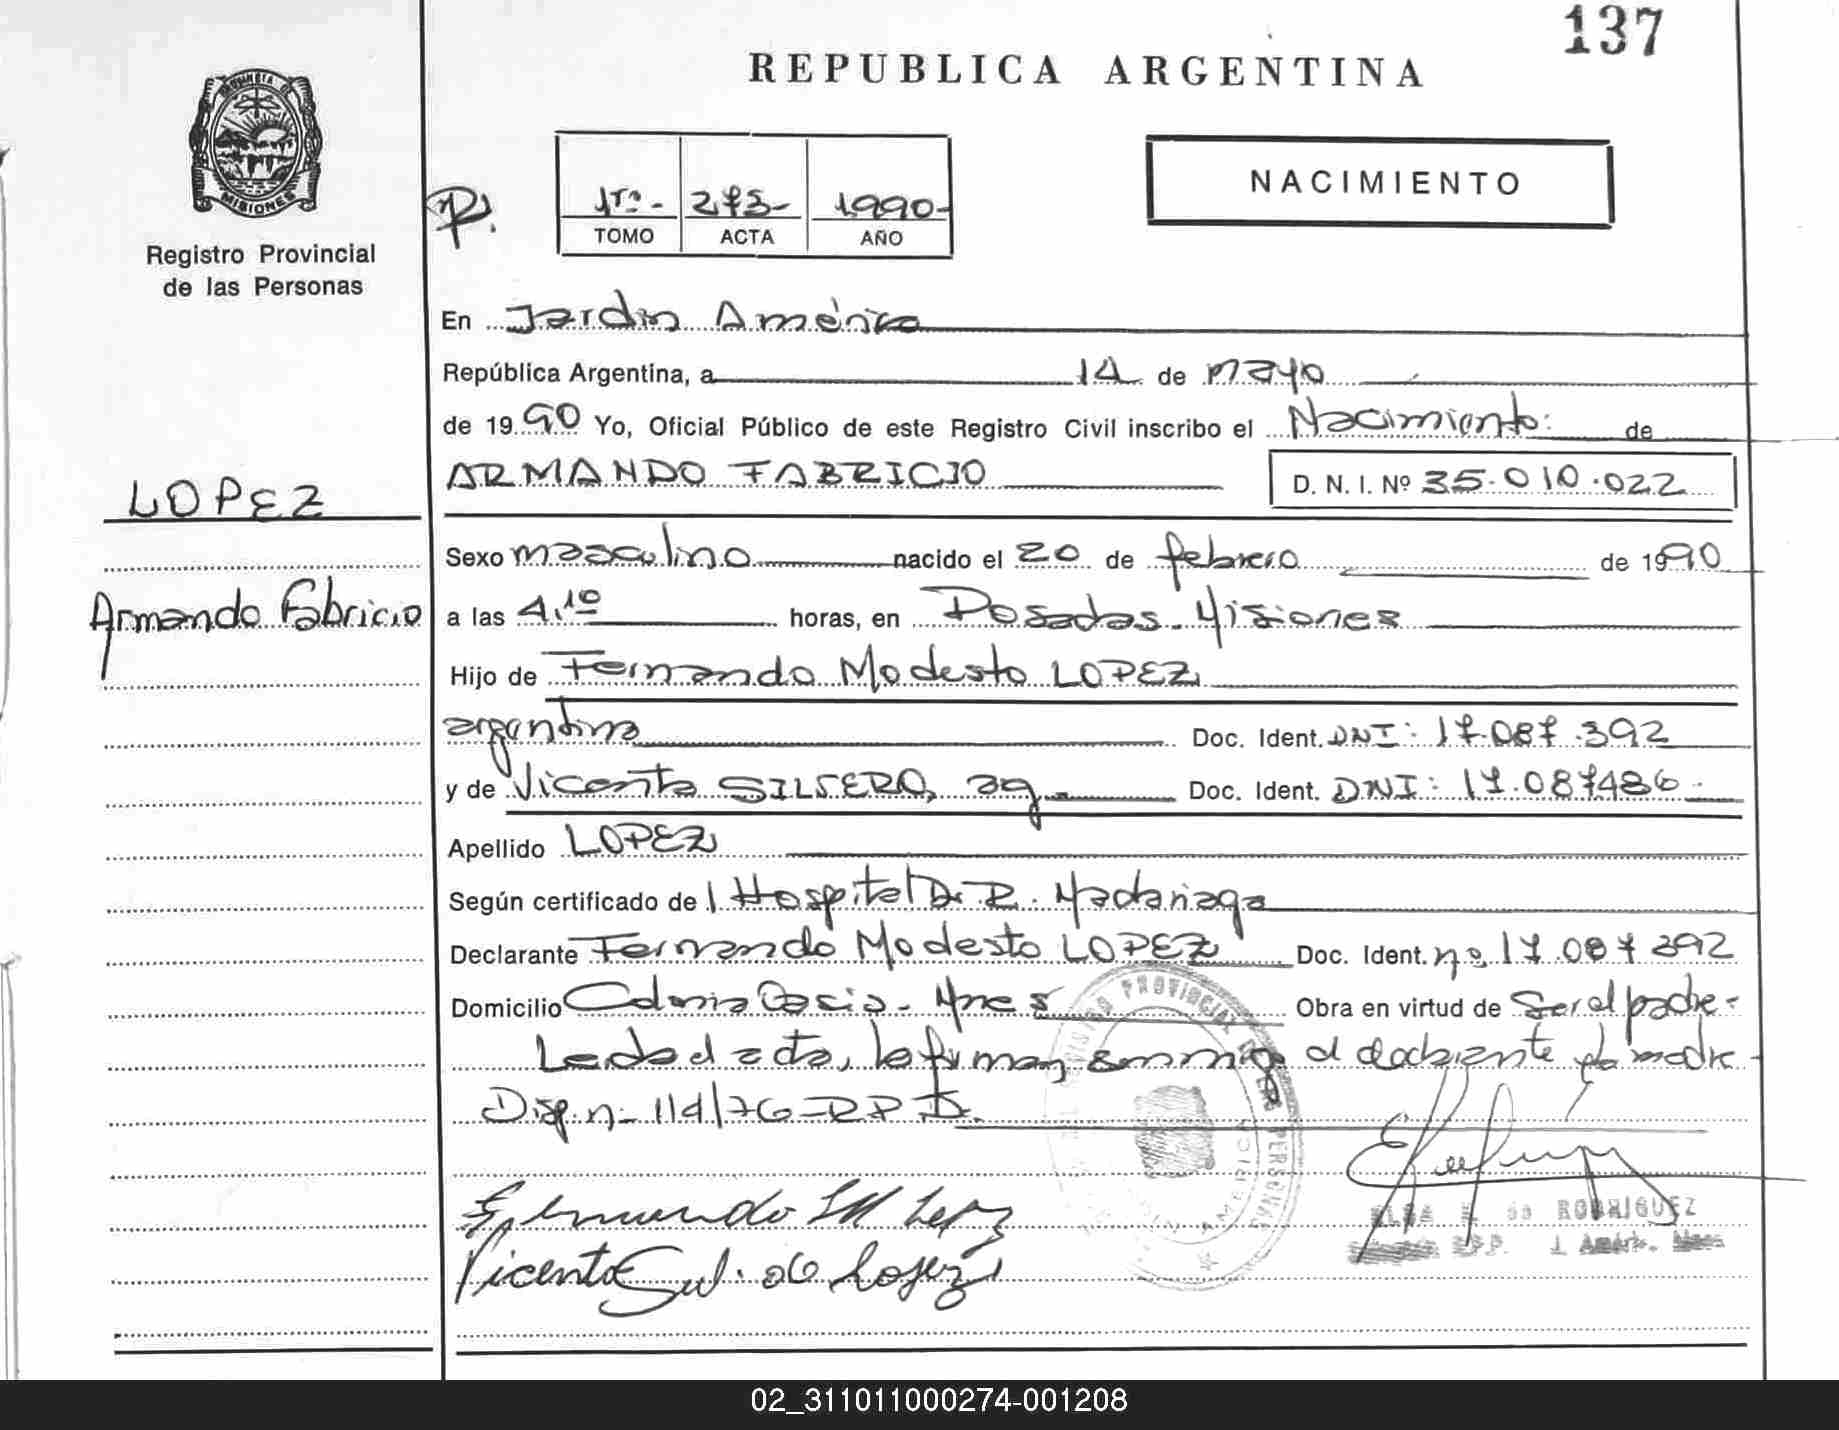 137
REPUBLICA ARGENTINA
PROVINCIA DE
MISIONES
Registro Provincial
de las Personas
1ro.- 273- 1990-
TOMO ACTA AÑO
NACIMIENTO
En Jardin América
República Argentina, a 14 de mayo
de 1990 Yo, Oficial Público de este Registro Civil inscribo el Nacimiento: de
ARMANDO FABRICIO D. N. I. Nº 35.010.022
LOPEZ
Armando Fabricio
Sexo masculino nacido el 20 de febrero de 1990
a las 4,10 horas, en Posadas. Misiones
Hijo de Fernando Modesto LOPEZ
argentino Doc. Ident. DNI: 17.087.392
y de Vicenta SILVERO, arg Doc. Ident. DNI: 17.087486
Apellido LOPEZ
Según certificado de l Hospital Dr R. Madariaga
Declarante Fernando Modesto LOPEZ Doc. Ident. nº 17.087392
Domicilio Colonia Mnes Obra en virtud de Ser el padre-
Leida el acta, la firman el y la madre
Disp. n- 114/76-RPD.
REGISTRO PROVINCIAL DE LAS PERSONAS
AMERICA
Lopez
Vicenta de Lopez
ELBA de RODRIGUEZ
J. Amér. Mnes
02_311011000274-001208